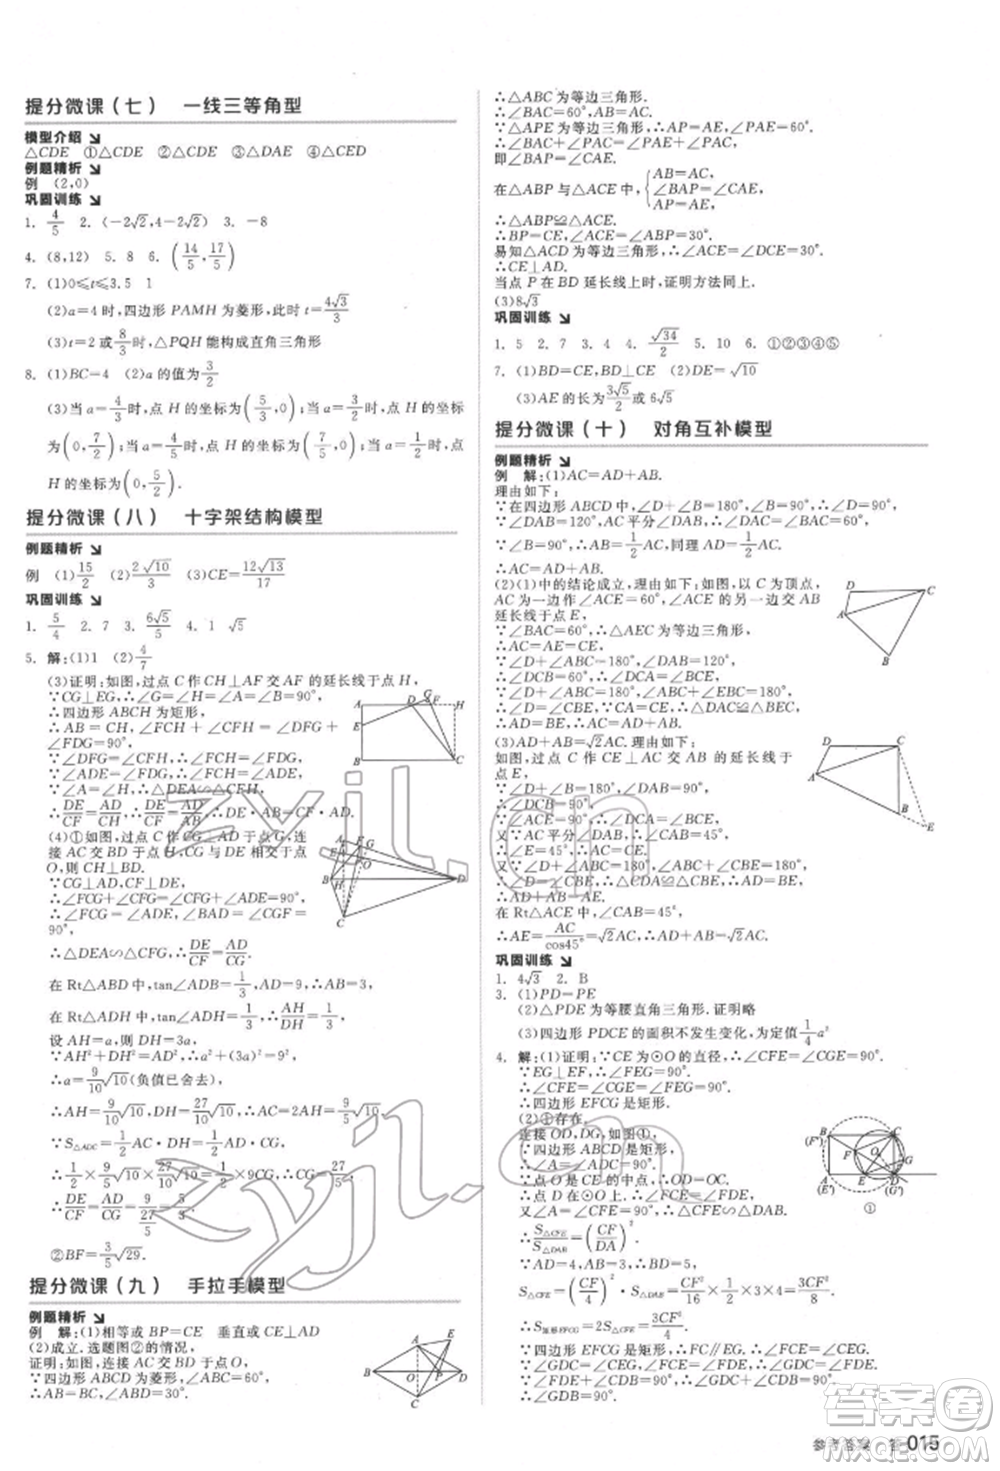 提分微课（七）　一线三等角型
模型介绍
△CDE　①△CDE　②△CDE　③△DAE　④△CED
例题精析
例　(2,0)
巩固训练
1. 4/5　2. (-2√2,4-2√2)　3. -8
4. (8,12)　5. 8　6. (14/5,17/5)
7. (1)0≤t≤3.5　1
(2)a=4时,四边形PAMH为菱形,此时t=4√3/3
(3)t=2或8/3时,△PQH能构成直角三角形
8. (1)BC=4　(2)a的值为3/2
(3)当a=4/3时,点H的坐标为(5/3,0);当a=3/2时,点H的坐标
为(0,7/2);当a=5/4时,点H的坐标为(7/2,0);当a=5/4时,点H的坐标为(0,5/2).
提分微课（八）　十字架结构模型
例题精析
例　(1)15/2　(2)2√10/3　(3)CE=12√13/17
巩固训练
1. 5/4　2. 7　3. 6√5/5　4. 1　√5
5. 解:(1)1　(2)4/7
(3)证明:如图,过点C作CH⊥AF交AF的延长线于点H,
∵CG⊥EG,∴∠G=∠H=∠A=∠B=90°,
∴四边形ABCH为矩形,
∴AB=CH,∠FCH+∠CFH=∠DFG+
∠FDG=90°,
∵∠DFG=∠CFH,∴∠FCH=∠FDG,
∵∠ADE=∠FDG,∴∠FCH=∠ADE,
∵∠A=∠H=90°,∴△DEA∽△CFH,
∴DE/CF=AD/CH,∴DE/CF=AD/AB,∴DE·AB=CF·AD.
(4)①如图,过点C作CG⊥AD于点G,连
接AC交BD于点H,CG与DE相交于点
O,∵CF⊥DE,GC⊥AD.
∴∠FCG+∠CFG=∠CFG+∠ADE=90°,
∴∠FCG=∠ADE,∠BAD=∠CGF=
90°.
∴△DEA∽△CFG,∴DE/CF=AD/CG
在Rt△ABD中,tan∠ADB=1/3,AD=9,∴AB=3,
在Rt△ADH中,tan∠ADH=1/3,
设AH=a,则DH=3a.
∵AH²+DH²=AD²,∴a²+(3a)²=9².
∴a=9/10√10(负值已舍去),
∴AH=9/10√10,DH=27/10√10,∴AC=2AH=9/5√10,
∵S△ADC=1/2AC·DH=1/2AD·CG,
∴1/2×9/5√10×27/10√10=1/2×9CG,∴CG=27/5.
∴DE/CF=AD/CG=9/(27/5)=5/3.
②BF=3/5√29.
提分微课（九）　手拉手模型
例题精析
例　解:(1)相等或BP=CE　垂直或CE⊥AD
(2)成立.选题图②的情况,
证明:如图,连接AC交BD于点O,
∵四边形ABCD为菱形,∠ABC=60°,
∴AB=BC,∠ABD=30°,
∴△ABC为等边三角形.
∴∠BAC=60°,AB=AC.
∵△APE为等边三角形,∴AP=AE,∠PAE=60°,
∴∠BAC+∠PAC=∠PAE+∠PAC.
即∠BAP=∠CAE.
在△ABP与△ACE中,{AB=AC,∠BAP=∠CAE,AP=AE,
∴△ABP≌△ACE.
∴BP=CE,∠ACE=∠ABP=30°.
易知△ACD为等边三角形,∴∠ACE=∠DCE=30°.
∴CE⊥AD.
当点P在BD延长线上时,证明方法同上.
(3)8√3
巩固训练
1. 5　2. 7　3. 3　4. √34/2　5. 10　6. ①②③④⑤
7. (1)BD=CE,BD⊥CE　(2)DE=√10
(3)AE的长为3√5/5或6√5
提分微课（十）　对角互补模型
例题精析
例　解:(1)AC=AD+AB.
理由如下:
∵在四边形ABCD中,∠D+∠B=180°,∠B=90°,∴∠D=90°,
∵∠DAB=120°,AC平分∠DAB,∴∠DAC=∠BAC=60°,
∵∠B=90°,∴AB=1/2AC,同理AD=1/2AC.
∴AC=AD+AB.
(2)(1)中的结论成立,理由如下:如图,以C为顶点,
AC为一边作∠ACE=60°,∠ACE的另一边交AB
延长线于点E,
∵∠BAC=60°,∴△AEC为等边三角形,
∴AC=AE=CE.
∵∠D+∠B=180°,∠DAB=120°,
∴∠DCB=60°,∴∠DCA=∠BCE.
∵∠D+∠ABC=180°,∠ABC+∠EBC=180°,
∴∠D=∠CBE,∵CA=CE,∴△DAC≌△BEC,
∴AD=BE,∴AC=AD+AB.
(3)AD+AB=√2AC.理由如下:
如图,过点C作CE⊥AC交AB的延长线于
点E,
∵∠D+∠B=180°,∠DAB=90°,
∴∠DCB=90°,
又∵∠ACE=90°,∴∠DCA=∠BCE.
又∵AC平分∠DAB,∴∠CAB=45°,
∴∠E=45°.∴AC=CE.
又∵∠D+∠ABC=180°,∴∠D=∠CBE,
∴△CDA≌△CBE,∴AD=BE,
∴AD+AB=AE.
在Rt△ACE中,∠CAB=45°,
∴AE=AC/cos45°=√2AC,∴AD+AB=√2AC.
巩固训练
1. 4√3　2. B
3. (1)PD=PE
(2)△PDE为等腰直角三角形.证明略
(3)四边形PDCE的面积不发生变化,为定值1/4a²
4. 解:(1)证明:∵CE为⊙O的直径,∴∠CFE=∠CGE=90°.
∵EG⊥EF,∴∠FEG=90°,
∴∠CFE=∠CGE=∠FEG=90°.
∴四边形EFCG是矩形.
(2)①存在,
连接OD,DG,如图①,
∵四边形ABCD是矩形,
∴∠A=∠ADC=90°.
∵点O是CE的中点,∴OD=OC.
∴点D在⊙O上.
∵∠FCE=∠FDE,∠A=∠CFE=90°,
∴△CFE∽△DAB,
∴S△CFE/S△DAB=(CF/DA)².
∵AD=4,AB=3,∴BD=5,
S△CFE=(CF/4)²·S△DAB=CF²/16×1/2×3×4=3CF²/8.
∴S矩形EFCG=2S△CFE=3CF²/4.
∵四边形EFCG是矩形,∴FC∥EG,∴∠FCE=∠CEG.
∵∠GDC=∠CEG,∠FCE=∠FDE,
∴∠GDC=∠FDE,∵∠FDE+∠CDB=90°,
∴∠GDC+∠CDB=90°,
∴∠GDB=90°.
参考答案　答015